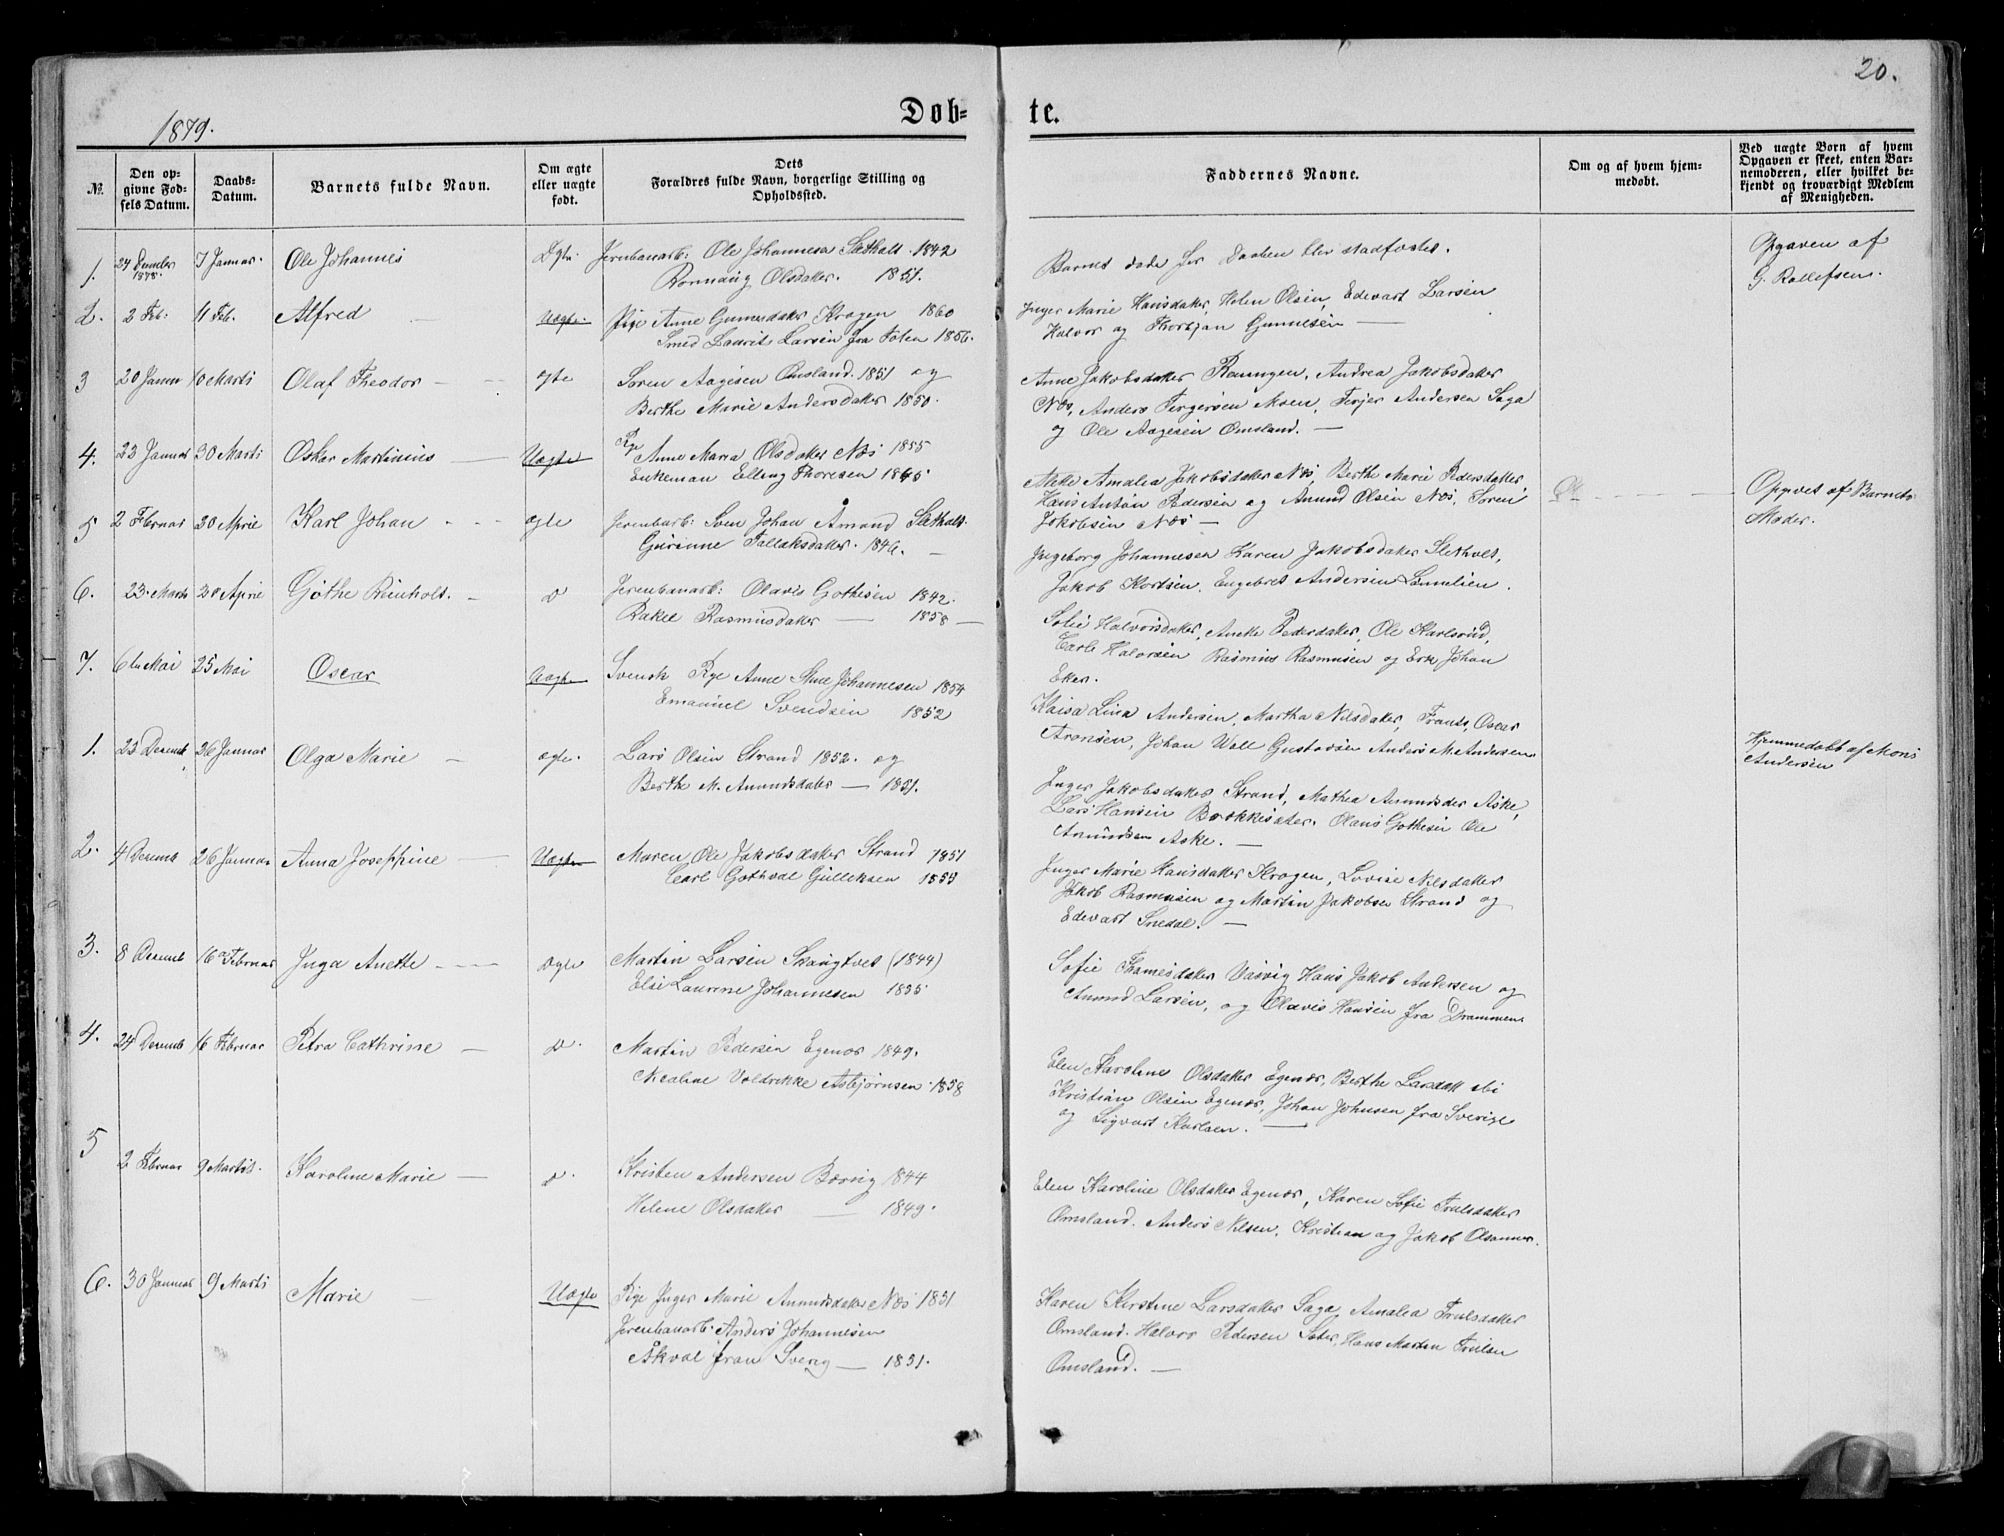 20.
1879.
Døb-
te.
№.
Den op-
givne Fød-
sels Datum.
Daabs-
Datum.
Barnets fulde Navn.
Om ægte
eller uægte
født.
Dets
Forældres fulde Navn, borgerlige Stilling og
Opholdssted.
Faddernes Navne.
Om og af hvem hjem-
medøbt.
Ved uægte Børn af hvem
Opgaven er skeet, enten Bar-
nemoderen, eller hvilket be-
kjendt og troværdigt Medlem
af Menigheden.
1. 24 1878. 7 Januar. Ole Johannes Ægte.
Jernbanarb: Ole Johannesen 1842
Olsdater. 1851.
Barnet døde før Daaben blev stadfæstet.
Opgaven af
G. Rollefsen.
2. 2 Feb: 11 Feb. Alfred Uægte
Pige Anne Gunnersdater Krogen 1860
Smed Laurits Larsen fra Toten 1856.
Inger Marie Hansdater, Helen Olsen, Edevart Larsen
Halvor og Thorbjørn Gunnelsen
3 20 Januar 10 Marts Olaf Theodor ægte
Søren Aagesen Omsland. 1851 og
Berthe Marie Andersdater 1850.
Anne Jakobsdater Rønningen, Andrea Jakobsdater
Næs, Anders Tergersen Moen, Terjer Andersen Saga
og Ole Aagesen Omsland.
4. 23 Januar 30 Marts Oskar Martinius Uægte
Pige Anne Maria Olsdater Næs 1855
Enkeman Elling Thoresen 1845
Anke Amalea Jakobsdater Næs, Berthe Marie Pedersdatter
Hans Anton Pedersen og Amund Olsen Næs, Søren
Jakobsen Næs
Opgivet af Barnets
Moder.
5 2 Februar 20 April Karl Johan ægte
Jernbarb: Sven Johan Åmand
Gurinne Tallaksdater. 1846.
Ingeborg Johannesen Karen Jakobsdater Sletholt,
Jakob Kortsen, Engebret Andersen
6. 23 Marts 20 April Gøthe Reinholt.
Jernbanarb: Olavis Gothesen 1842.
Rakel Rasmusdater 1858
Sofie Halvorsdater, Aneke Pedersdater, Ole Karlsrud,
Carl Halvorsen Rasmus Rasmusen og Erk Johan
Eker.
7. 6te Mai 25 Mai Oscar Uægte
Svensk Pige Anne Stine Johannesen 1854
Emanuel Svendsen 1852
Kaisa Lina Andersen, Martha Nilsdater, Frants, Oscar
Aronsen, Johan Wall Gustavsen Anders M. Andersen
1. 23 Decemb 26 Januar Olga Marie ægte.
Lars Olsen Strand 1852. og
Berthe M. Amundsdater 1851.
Inger Jakobsdater Strand, Mathea Amundsder Aske,
Lars Hansen Brækkesæter. Olavs Gothesen Ole
Amundsen Aske.
Hjemmedøbt af Mons
Andersen
2. 4 Decemb 26 Januar Anna Joseppine Uægte
Maren Ole Jakobsdater Strand 1851
Carl Gothval Gulleksen 1853
Inger Marie Hansdater Krogen, Lovise Nilsdater
Jakob Rasmusen og Martin Jakobsen Strand og
Edevart Snedal.
3. 8 Decemb 16 Februar Inga Anette Ægte
Martin Larsen Skangtvet (1844)
Elsi Laurine Johannesen 1855
Sofie Thomesdater Vasvig Hans Jakob Andersen og
Amund Larsen, og Olavis Hansen fra Drammen
4. 24 Decemb 16 Februar Petra Cathrine
Martin Pedersen Egenæs 1849.
Nicoline Voldrikke Asbjørnsen 1858
Elen Karoline Olsdater Egenæs, Berthe
Kristian Olsen Egenæs, Johan Johnsen fra Sverige
og Sigvart Karlsen.
5 2 Februar 9 Marts. Karoline Marie
Kristen Andersen Bærvig 1844
Helene Olsdater 1849.
Elen Karoline Olsdater Egenæs, Karen Sofie Trulsdater
Omsland. Anders Nilsen, Kristian og Jakob
6. 30 Januar 9 Marts Marie Uægte
Pige Inger Marie Amundsdater Næs 1851
Jernbanarb: Anders Johannesen
Åkval fran Sverig 1851.
Karen Kirstine Larsdater Saga, Amalea Trulsdater
Omsland. Halvor Pedersen Hans Martin Trulsen
Omsland.